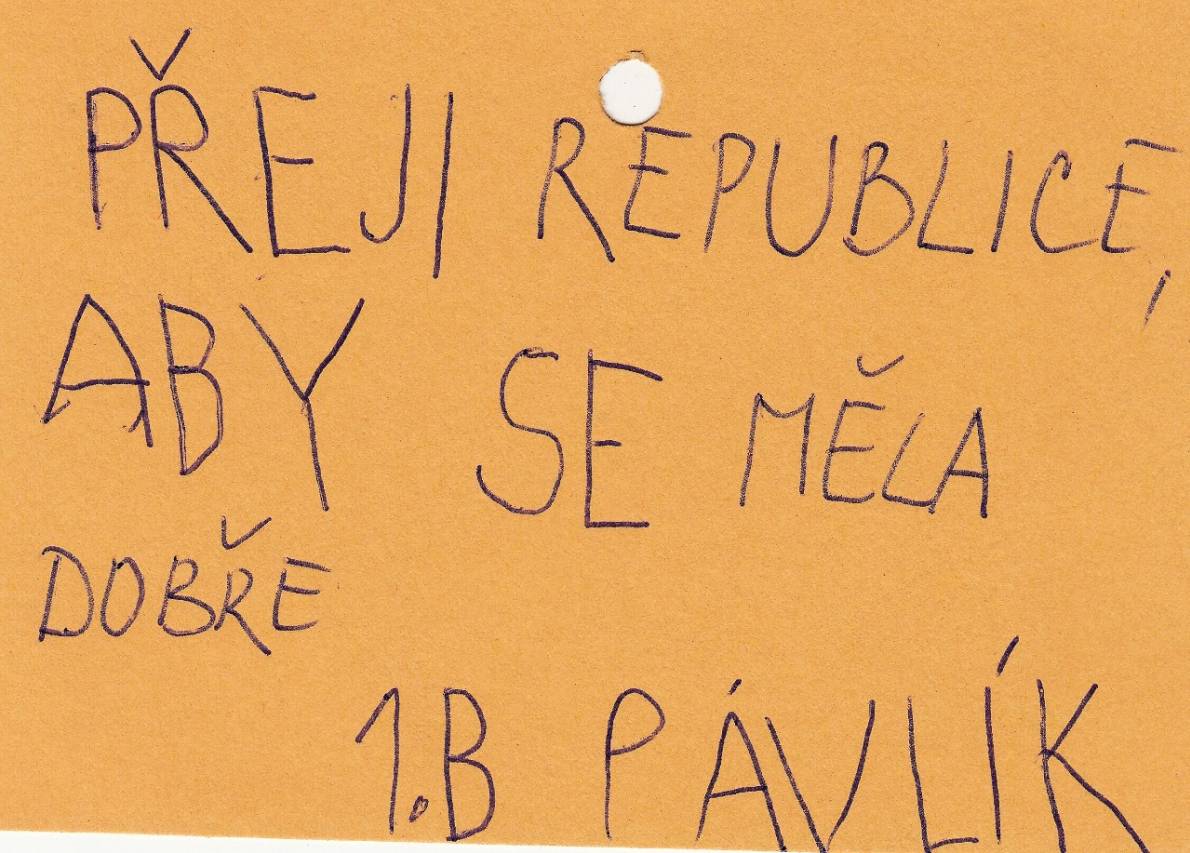 PŘEJI REPUBLICE,
ABY SE MĚLA
DOBŘE
1.B PÁVLÍK